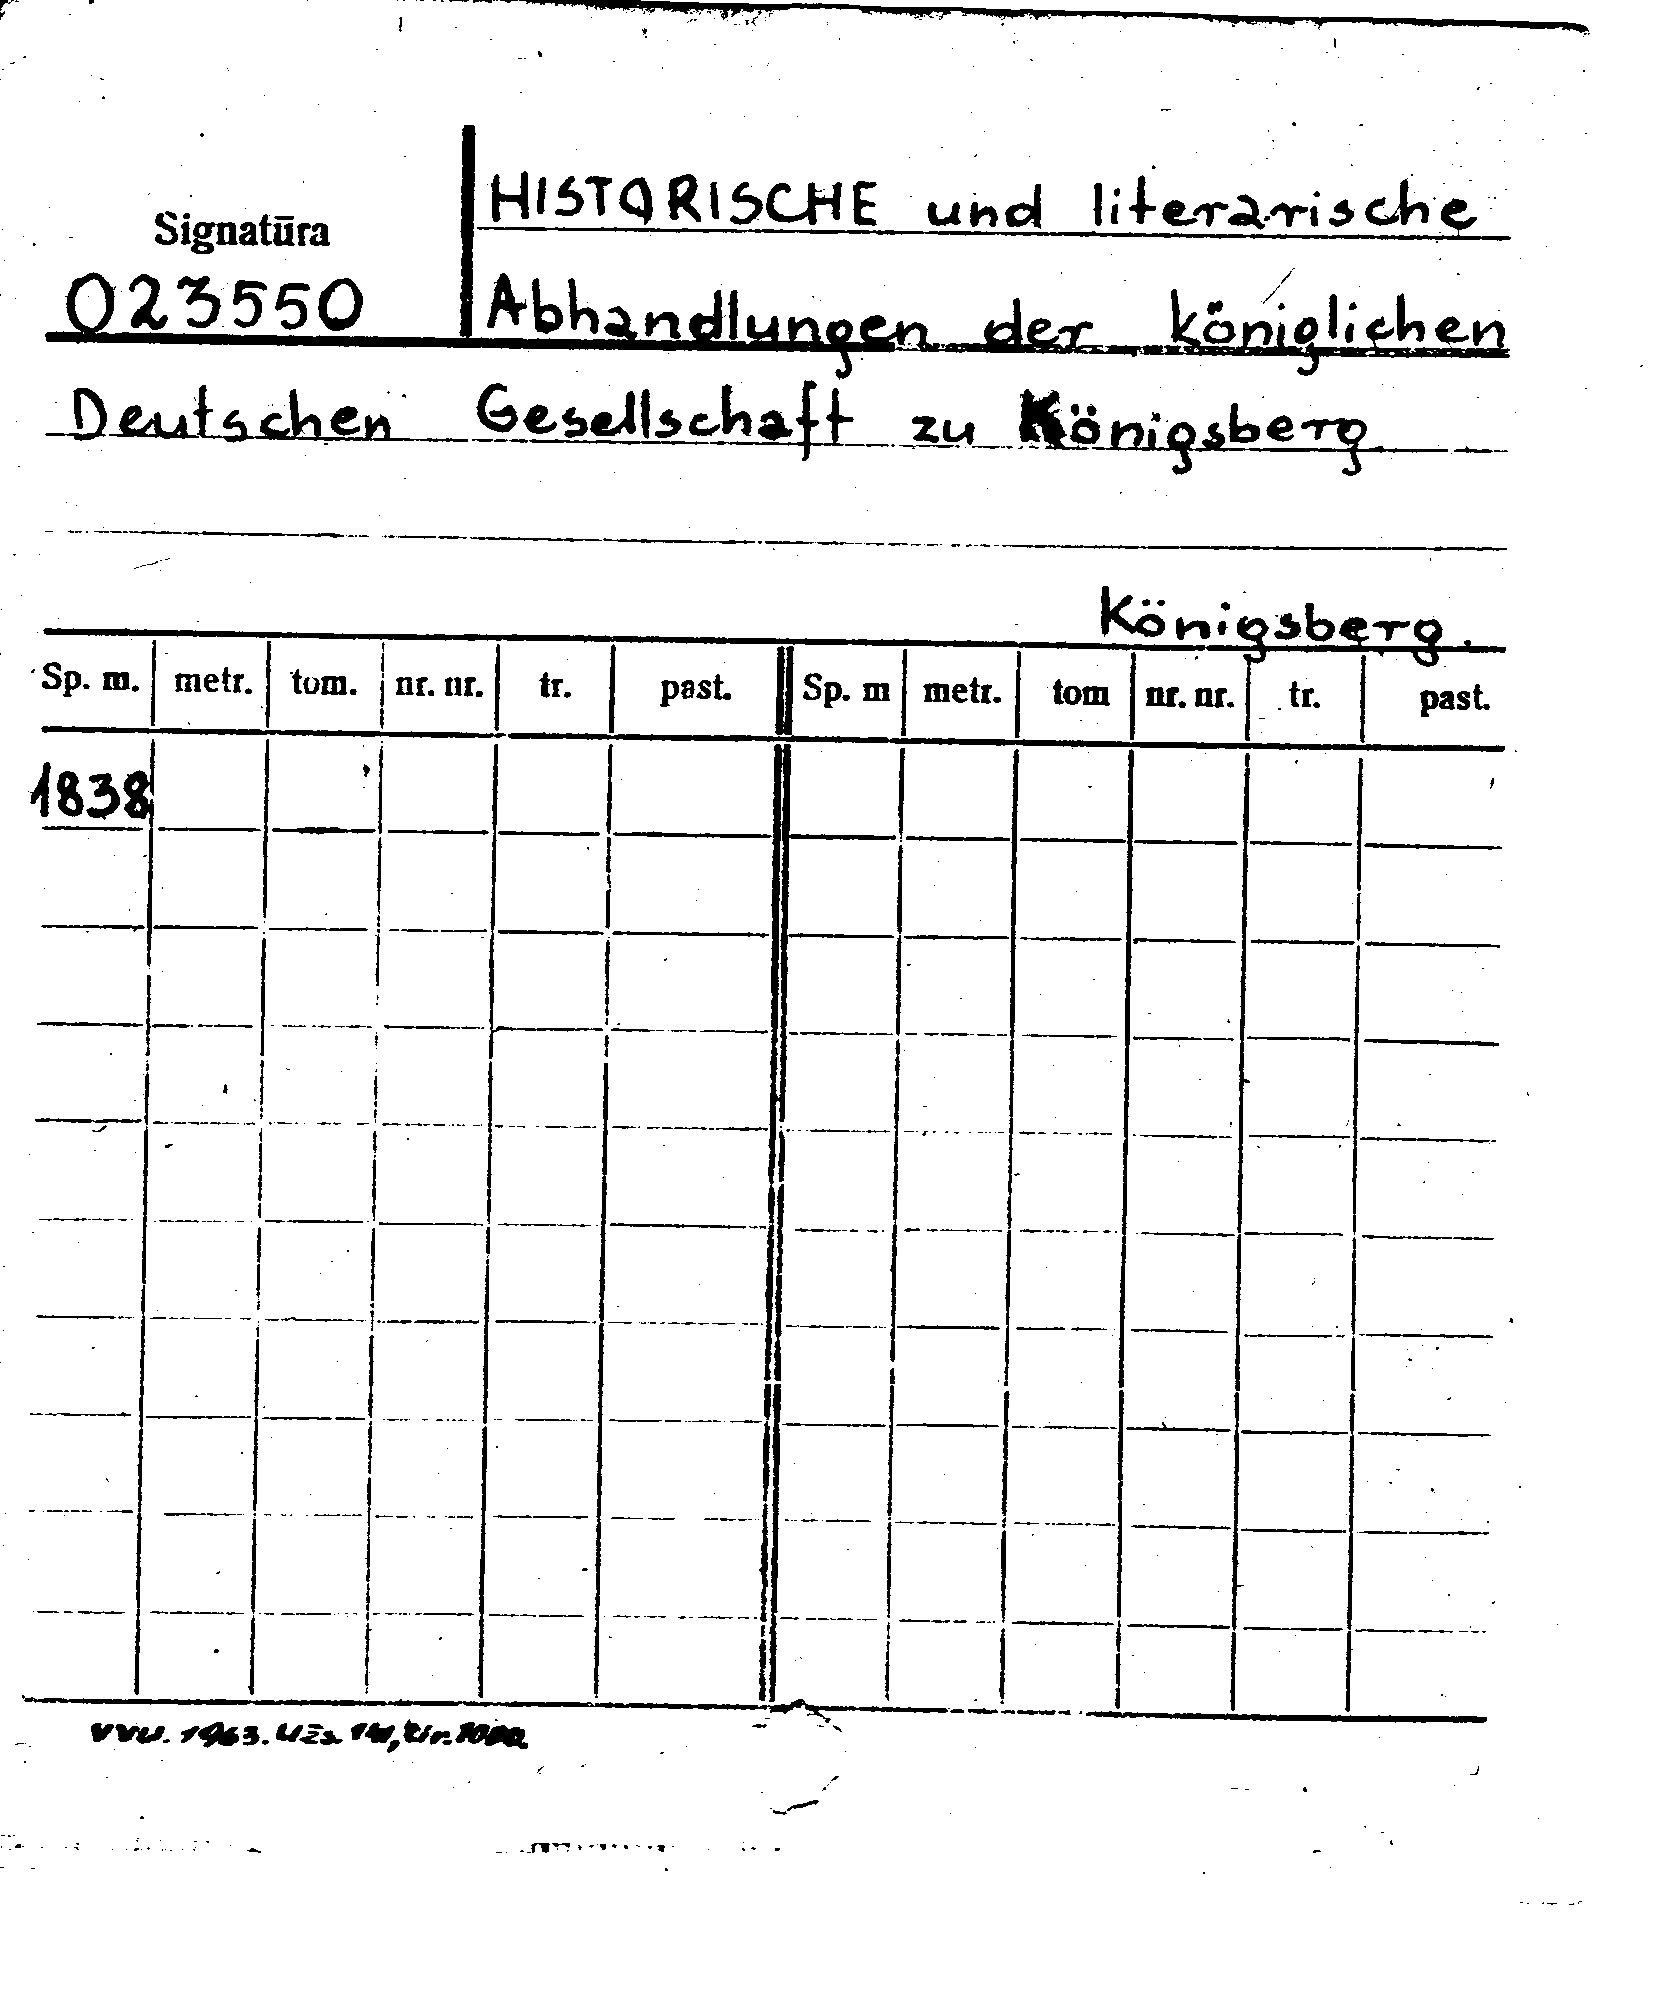 HISTORISCHE und literarische
Signatūra
023550 Abhandlungen der königlichen
Deutschen Gesellschaft zu Königsberg
Königsberg.
Sp. m. metr. tom. nr. nr. tr. past. Sp. m metr. tom nr. nr. tr. past.
1838
VVU. 1963. Užs. 141, tir. 1000.